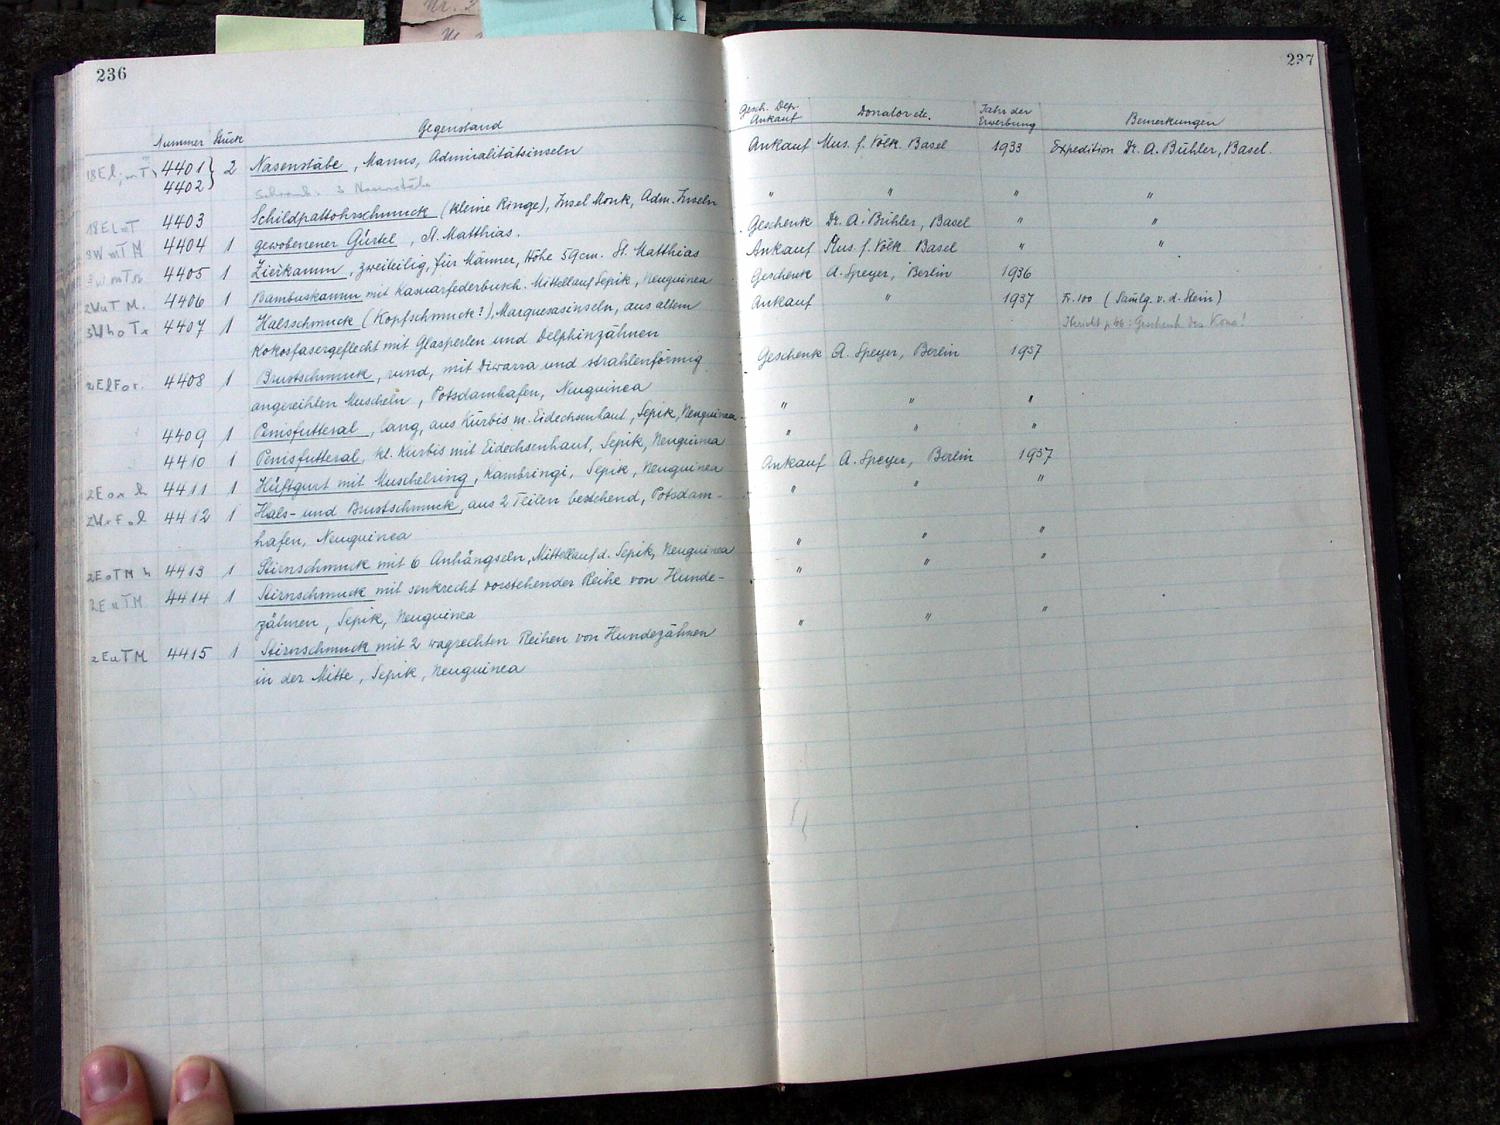 236
Nummer Stück Gegenstand
4401 } 2 Nasenstäbe, Manus, Admiralitätsinseln
4402 } 3 Nasenstäbe
4403 Schildpattohrschmuck (kleine Ringe), Insel Monk, Adm. Inseln
4404 1 gewobenener Gürtel, St. Matthias.
4405 1 Zierkamm, zweiteilig, für Männer, Höhe 59cm. St. Matthias
4406 1 Bambuskamm mit Kasuarfederbusch. Mittellauf Sepik, Neuguinea
4407 1 Halsschmuck (Kopfschmuck?), Marquesasinseln, aus altem
Kokosfasergeflecht mit Glasperlen und Delphinzähnen
4408 1 Brustschmuck, rund, mit Diwarra und strahlenförmig
angereihten Muscheln, Potsdamhafen, Neuguinea
4409 1 Penisfutteral, lang, aus Kürbis m. Eidechsenhaut, Sepik, Neuguinea
4410 1 Penisfutteral, kl. Kürbis mit Eidechsenhaut, Sepik, Neuguinea
4411 1 Hüftgurt mit Muschelring, Kambringi, Sepik, Neuguinea
4412 1 Hals- und Brustschmuck, aus 2 Teilen bestehend, Potsdam-
hafen, Neuguinea
4413 1 Stirnschmuck mit 6 Anhängseln, Mittellauf d. Sepik, Neuguinea
4414 1 Stirnschmuck mit senkrecht vorstehender Reihe von Hunde-
zähnen, Sepik, Neuguinea
2EuTM 4415 1 Stirnschmuck mit 2 wagrechten Reihen von Hundezähnen
in der Mitte, Sepik, Neuguinea
237
Gesch. Dep. Ankauf Donator etc. Jahr der Erwerbung Bemerkungen
Ankauf Mus. f. Völk. Basel 1933 Expedition Dr. A. Bühler, Basel.
" " " "
Geschenk Dr. A. Bühler, Basel " "
Ankauf Mus. f. Völk. Basel " "
Geschenk A. Speyer, Berlin 1936
Ankauf " 1937 Fr. 100 (Samlg. v. d. Stein)
Geschenk A. Speyer, Berlin 1937
" " "
" " "
Ankauf A. Speyer, Berlin 1937
" " "
" " "
" " "
" " "